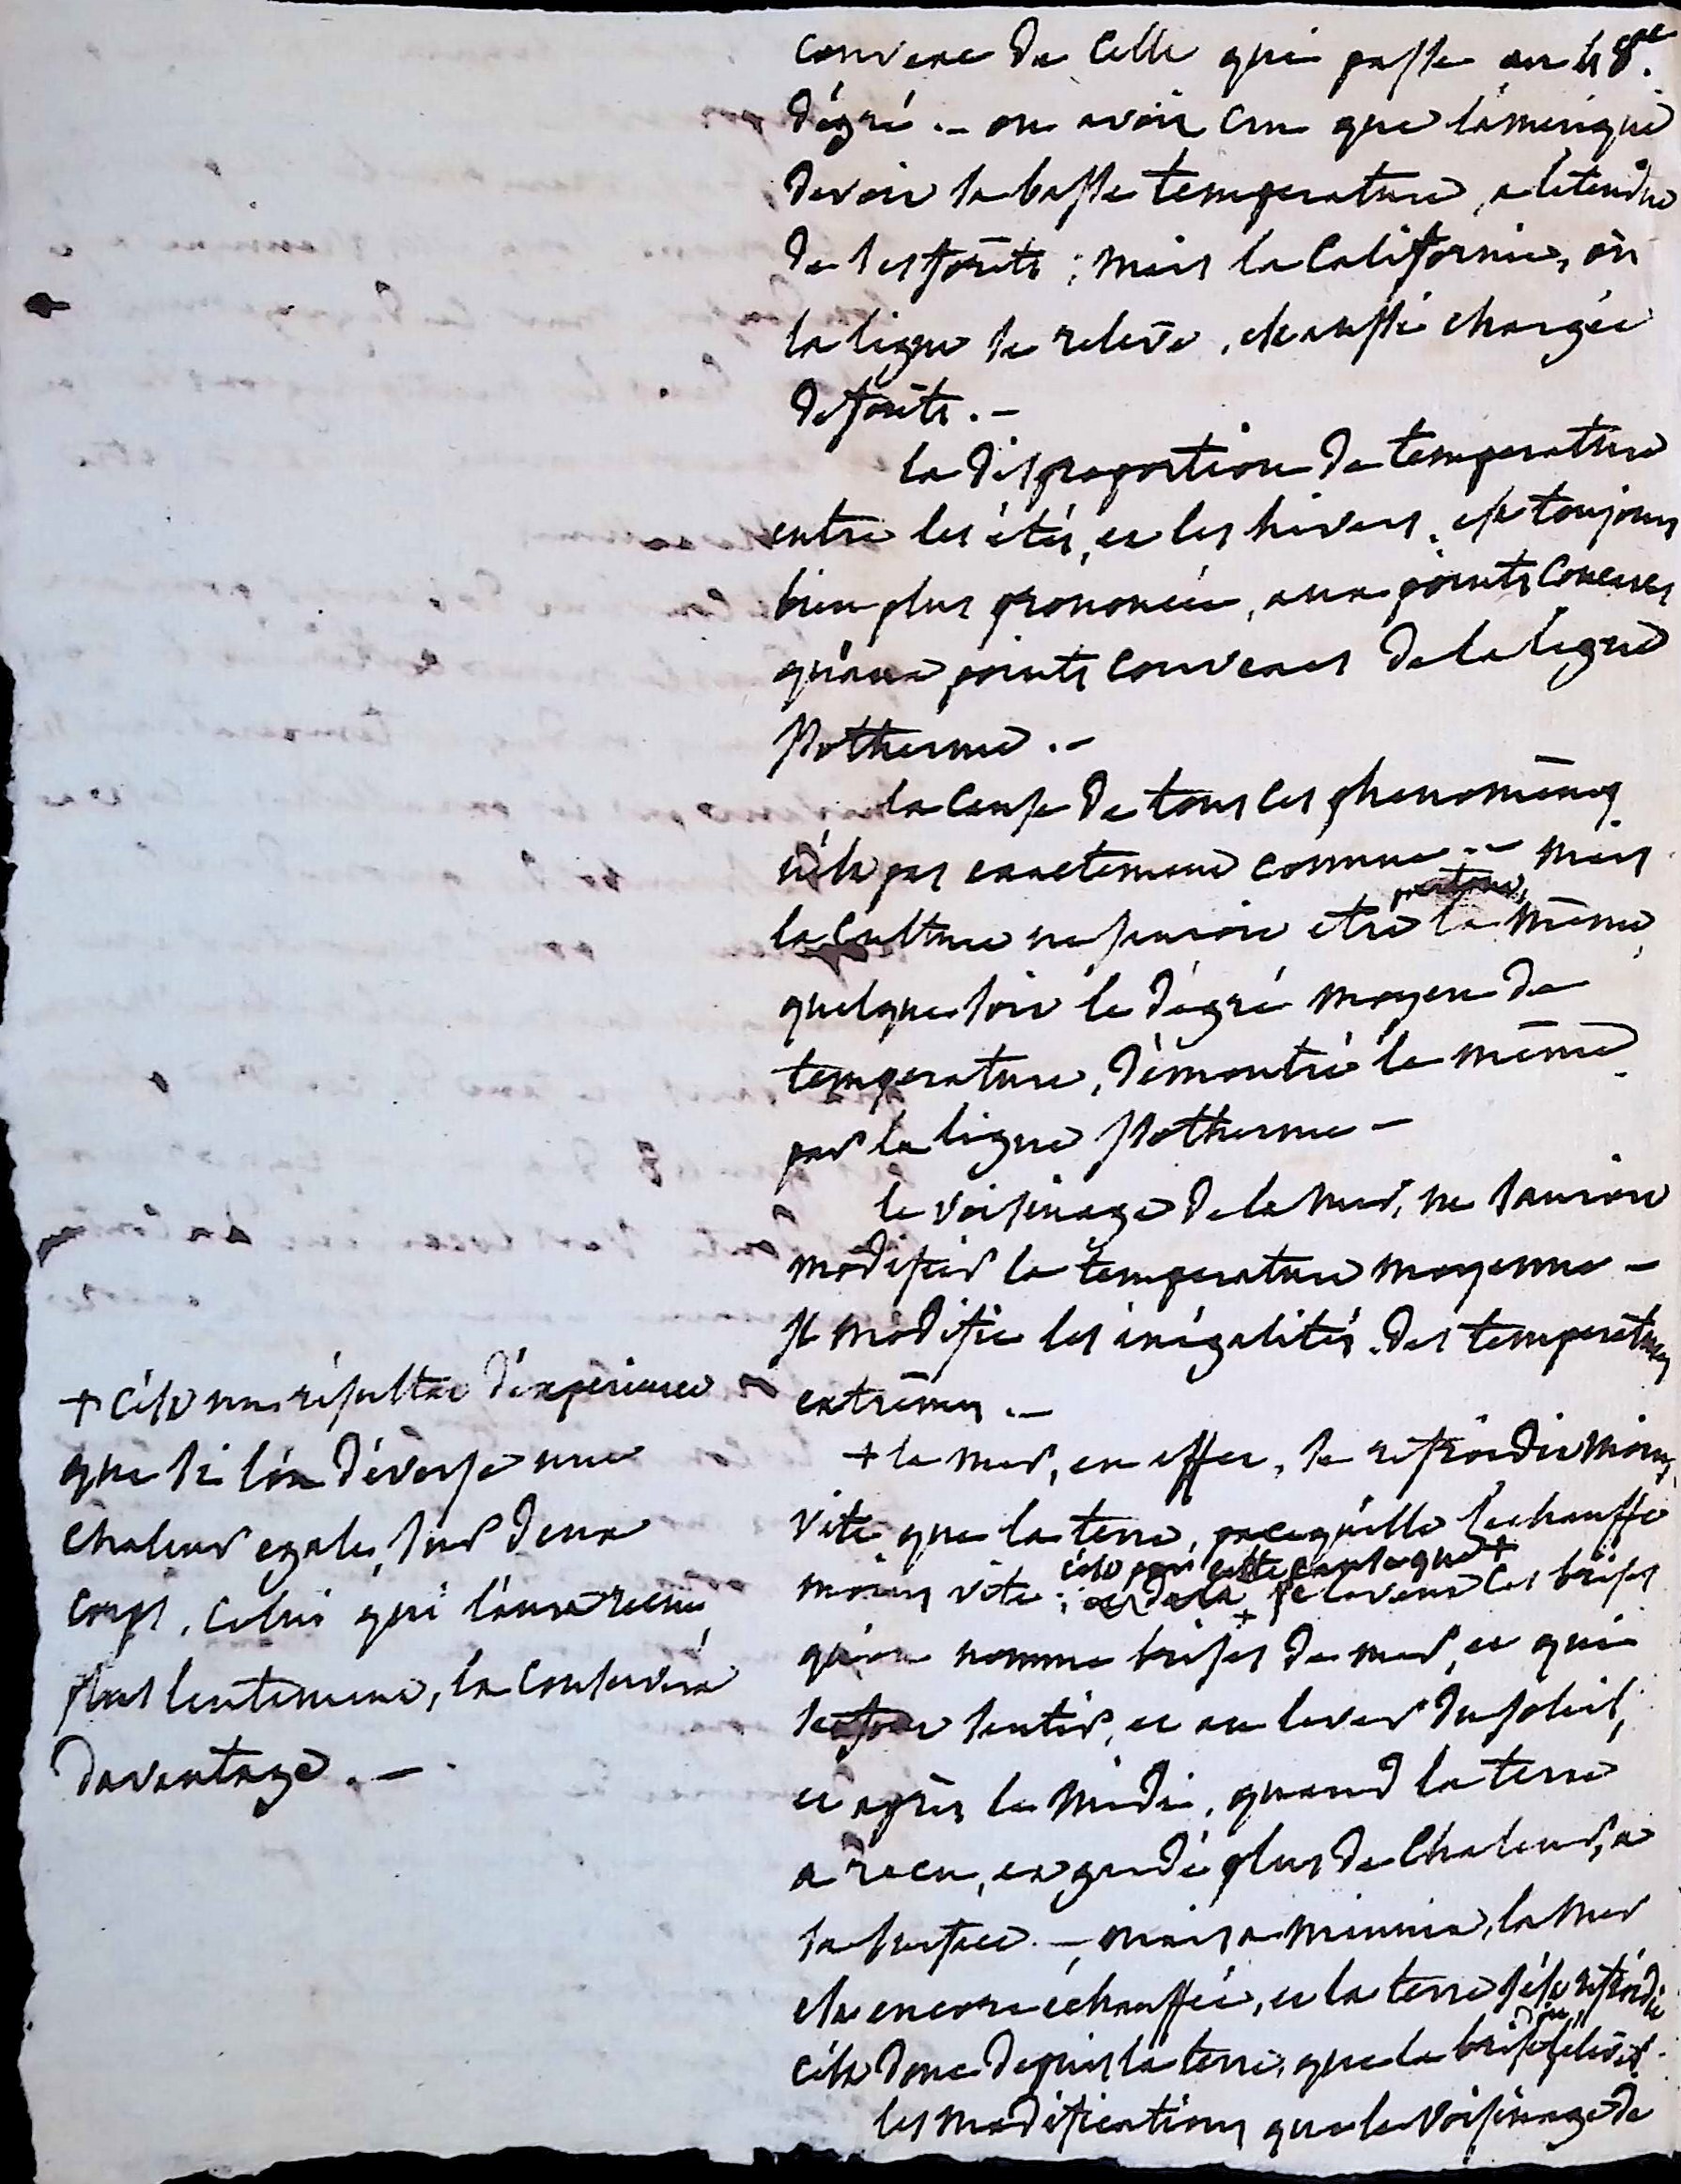 convexe de celle qui passe au 48me.
dégré. – on avoit cru que l'amerique
devoit sa basse temperature, a letendue
de ses forêts ; mais la Californie, où
la ligne se relève, est aussi chargée
de forêts. –
la disproportion de temperature
entre les étés, et les hivers, est toujours
bien plus prononcée, aux points concaves
qu'aux points convexes de la ligne
Isotherme. –
la cause de tous ces phenomènes
n'est pas exactement connue. – mais
la culture ne sauroit etre partout, la même,
quelque soit le dégré moyen de
temperature, démontré le même
par la ligne Isotherme –
le voisinage de la mer, ne sauroit
modifier la temperature moyenne –
Il modifie les inégalités des temperatures
extrêmes. –
+ la mer, en effet, se refroidit moins
vite que la terre, parcequ'elle s'echauffe
moins vite ; c'est par cette cause que +
se lèvent les brises
qu'on nomme brises de mer, et qui
se font sentir, et au lever du soleil,
et après le midi, quand la terre
a recu, et gardé plus de chaleur, a
sa surface. – mais a minuit, la mer
est encore échauffée, et la terre s'est refroidie
c'est donc depuis la terre, que la brise s'elève.
les modifications que le voisinage de
+ c'est un résultat d'expérience
que si l'on déverse une
chaleur egale, sur deux
corps, celui qui l'aura recue
plus lentement, la conservera
davantage. –